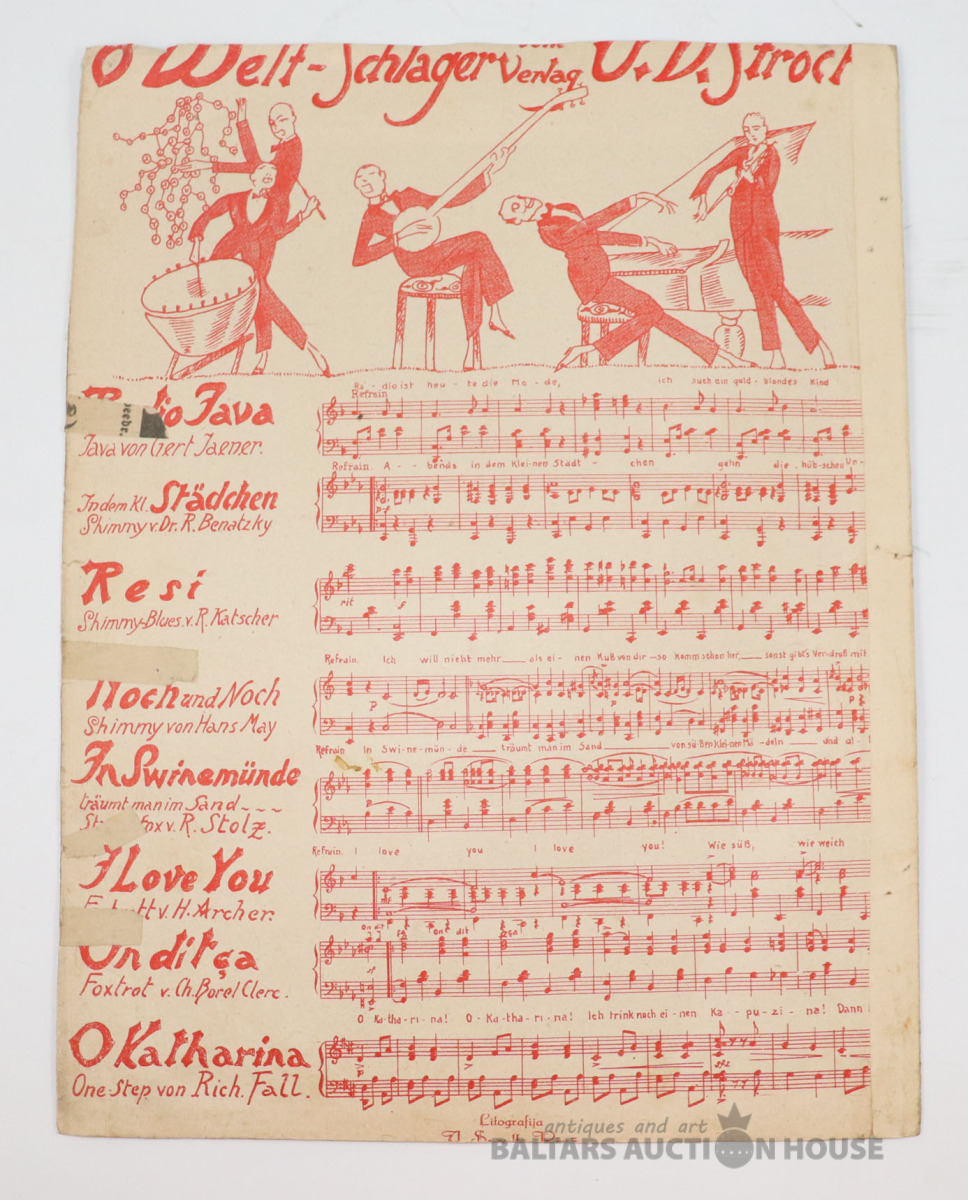 8 Welt-Schlager vom Verlag O. D. Strock
Radio Java
Java von Gert Jaener.
Ra-dio ist heu-te die Mo-de, ich such ein gold-blondes Kind
Refrain
Refrain. A--bends in dem Klei-nen Städt-chen gehn die hüb-schen Un-
In dem Kl. Städchen
Shimmy v. Dr. R. Benatzky
Resi
Shimmy-Blues. v. R. Katscher
rit
f
Refrain. Ich will nicht mehr als ei-nen Kuß von dir so komm schon her, sonst gibt's Ver-druß mit
Noch und Noch
Shimmy von Hans May
p
p
Refrain In Swi-ne-mün-de träumt man im Sand von sü-ßen klei-nen Mä-deln und al-
In Swinemünde
träumt man im Sand ~~~
fox v. R. Stolz.
p
Refrain. I love you I love you! Wie süß, wie weich
I Love You
v. H. Archer.
On dit ça on dit ça!
On dit ça
Foxtrot v. Ch. Borel Clerc.
O Ka-tha-ri-na! O-Ka-tha-ri-na! Ich trink noch ei-nen Ka-pu-zi-na! Dann
O Katharina
One-Step von Rich. Fall.
sfz
Litografija
antiques and art
BALTARS AUCTION HOUSE